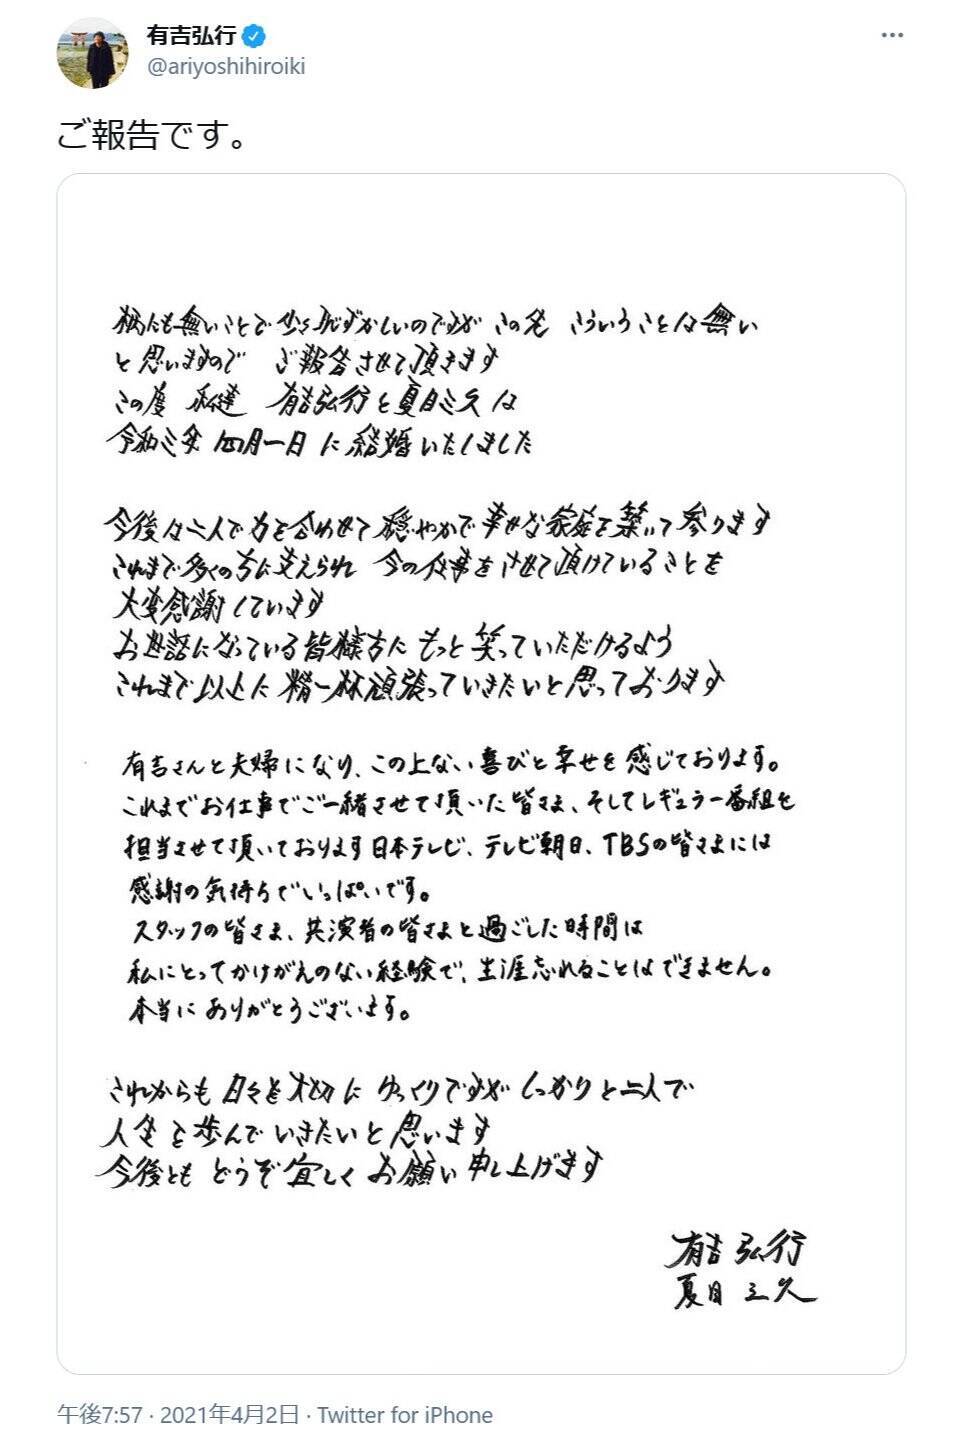 有吉弘行
@ariyoshihiroiki
ご報告です。
柄にも無いことで少々恥ずかしいのですが この先 こういうことは無い
と思いますので ご報告させて頂きます
この度 私達 有吉弘行と夏目三久は
令和三年 四月一日 に結婚いたしました
今後は二人で力を合わせて穏やかで幸せな家庭を築いて参ります
これまで多くの方に支えられ 今の仕事をさせて頂けていることを
大変感謝しています
お世話になっている皆様方に もっと笑っていただけるよう
これまで以上に精一杯頑張っていきたいと思っております
有吉さんと夫婦になり、この上ない喜びと幸せを感じております。
これまでお仕事でご一緒させて頂いた皆さま、そしてレギュラー番組を
担当させて頂いております日本テレビ、テレビ朝日、TBSの皆さまには
感謝の気持ちでいっぱいです。
スタッフの皆さま、共演者の皆さまと過ごした時間は
私にとってかけがえのない経験で、生涯忘れることはできません。
本当にありがとうございます。
これからも 日々を大切に ゆっくりですが しっかりと二人で
人生を歩んでいきたいと思います
今後とも どうぞ宜しくお願い申し上げます
有吉弘行
夏目三久
午後7:57 · 2021年4月2日 · Twitter for iPhone